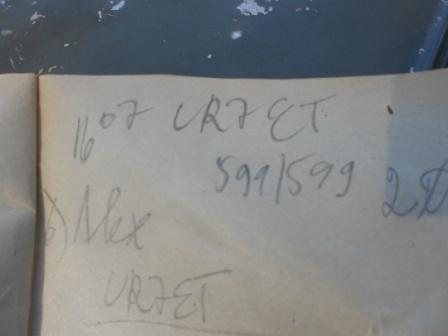 16 07 UR7ET
599/599 2
Alex
UR7ET